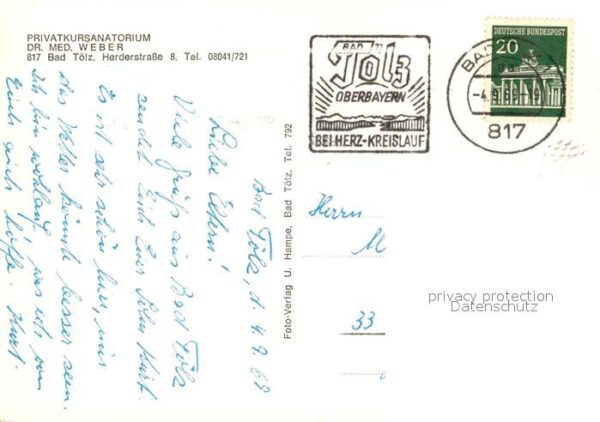 PRIVATKURSANATORIUM
DR. MED. WEBER
817 Bad Tölz, Herderstraße 8, Tel. 08041/721
BAD
Tölz
OBERBAYERN
BEI HERZ-KREISLAUF
DEUTSCHE BUNDESPOST
20
BAD
-4.9.68-19
817
Bad Tölz, d. 4.9.68
Liebe Eltern!
Viele Grüße aus Bad Tölz
sendet Euch Euer Sohn Kurt.
Es ist sehr schön hier, nur
das Wetter könnte besser sein.
Ich bin wohlauf, was ich von
Euch auch hoffe. Kurt.
Foto-Verlag U. Hampe, Bad Tölz, Tel. 792
Herrn
M
33
privacy protection
Datenschutz